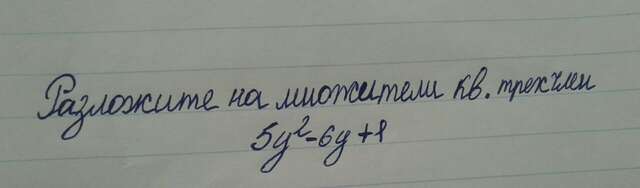 Разложите на множители кв. трехчлен
5y²-6y+1